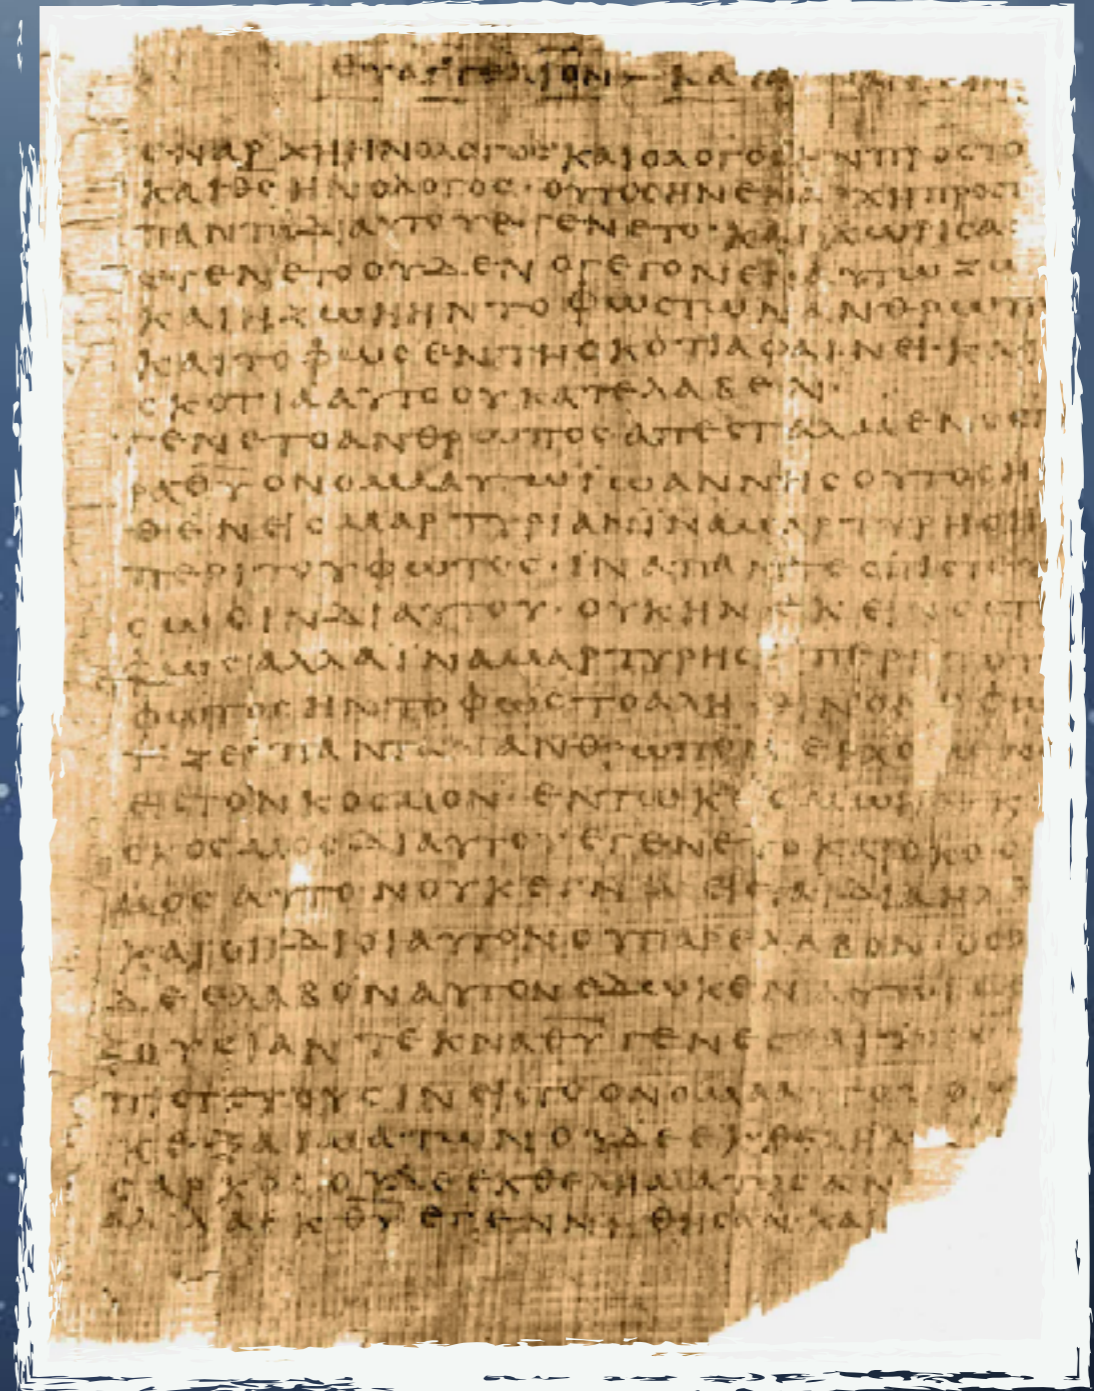 ΕΥΑΓΓΕΛΙΟΝ ΚΑΤΑ
ΕΝΑΡΧΗΗΝΟΛΟΓΟΣΚΑΙΟΛΟΓΟΣΗΝΠΡΟΣΤΟ
ΚΑΙΘΣΗΝΟΛΟΓΟΣ·ΟΥΤΟΣΗΝΕΝΑΡΧΗΠΡΟΣΤ
ΠΑΝΤΑΔΙΑΥΤΟΥΕΓΕΝΕΤΟ·ΚΑΙΧΩΡΙΣΑ
ΕΓΕΝΕΤΟΟΥΔΕΝΟΓΕΓΟΝΕΝ·ΑΥΤΩΖΩ
ΚΑΙΗΖΩΗΗΝΤΟΦΩΣΤΩΝΑΝΘΡΩΠ
ΚΑΙΤΟΦΩΣΕΝΤΗΣΚΟΤΙΑΦΑΙΝΕΙ·ΚΑΙ
ΣΚΟΤΙΑΑΥΤΟΟΥΚΑΤΕΛΑΒΕΝ·
ΓΕΝΕΤΟΑΝΘΡΩΠΟΣΑΠΕΣΤΑΛΜΕΝΟΣΠ
ΡΑΘΥΟΝΟΜΑΑΥΤΩΙΩΑΝΝΗΣΟΥΤΟΣΗ
ΘΕΝΕΙΣΜΑΡΤΥΡΙΑΝΙΝΑΜΑΡΤΥΡΗΣΗ
ΠΕΡΙΤΟΥΦΩΤΟΣ·ΙΝΑΠΑΝΤΕΣΠΙΣΤΕΥ
ΣΩΣΙΝΔΙΑΥΤΟΥ·ΟΥΚΗΝΕΚΕΙΝΟΣΤ
ΦΩΣΑΛΛΑΙΝΑΜΑΡΤΥΡΗΣΗΠΕΡΙΤΟΥ
ΦΩΤΟΣΗΝΤΟΦΩΣΤΟΑΛΗΘΙΝΟΝΟΦΩ
ΤΙΖΕΙΠΑΝΤΑΑΝΘΡΩΠΟΝΕΡΧΟΜΕΝ
ΕΙΣΤΟΝΚΟΣΜΟΝ·ΕΝΤΩΚΟΣΜΩΗΝΚ
ΟΚΟΣΜΟΣΔΙΑΥΤΟΥΕΓΕΝΕΤΟΚΑΙΟΚΟΣ
ΜΟΣΑΥΤΟΝΟΥΚΕΓΝΩΕΙΣΤΑΙΔΙΑΗΛΘ
ΚΑΙΟΙΙΔΙΟΙΑΥΤΟΝΟΥΠΑΡΕΛΑΒΟΝ·ΟΣΟ
ΔΕΕΛΑΒΟΝΑΥΤΟΝΕΔΩΚΕΝΑΥΤΟΙΣΕ
ΞΟΥΣΙΑΝΤΕΚΝΑΘΥΓΕΝΕΣΘΑΙ
ΠΙΣΤΕΥΟΥΣΙΝΕΙΣΤΟΟΝΟΜΑΑΥΤΟΥΟΥ
ΚΕΞΑΙΜΑΤΩΝΟΥΔΕΕΚΘΕΛΗΜ
ΣΑΡΚΟΣΟΥΔΕΕΚΘΕΛΗΜΑΤΟΣΑΝ
ΑΛΛΑΕΚΘΥΕΓΕΝΝΗΘΗΣΑΝ·ΚΑΙ